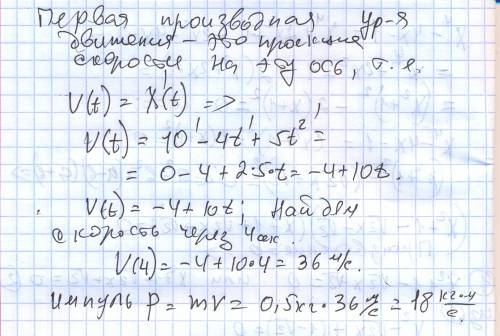 Первая производная ур-я
движения - это проекция
скорости на эту ось, т.е.
V(t) = X'(t) =>
V(t) = 10' - 4t' + 5t²' =
= 0 - 4 + 2·5·t = -4 + 10t.
V(t) = -4 + 10t; Найдём
скорость через 4 сек.
V(4) = -4 + 10·4 = 36 м/с.
Импуль P = mV = 0,5кг·36 м/с = 18 кг·м/с.